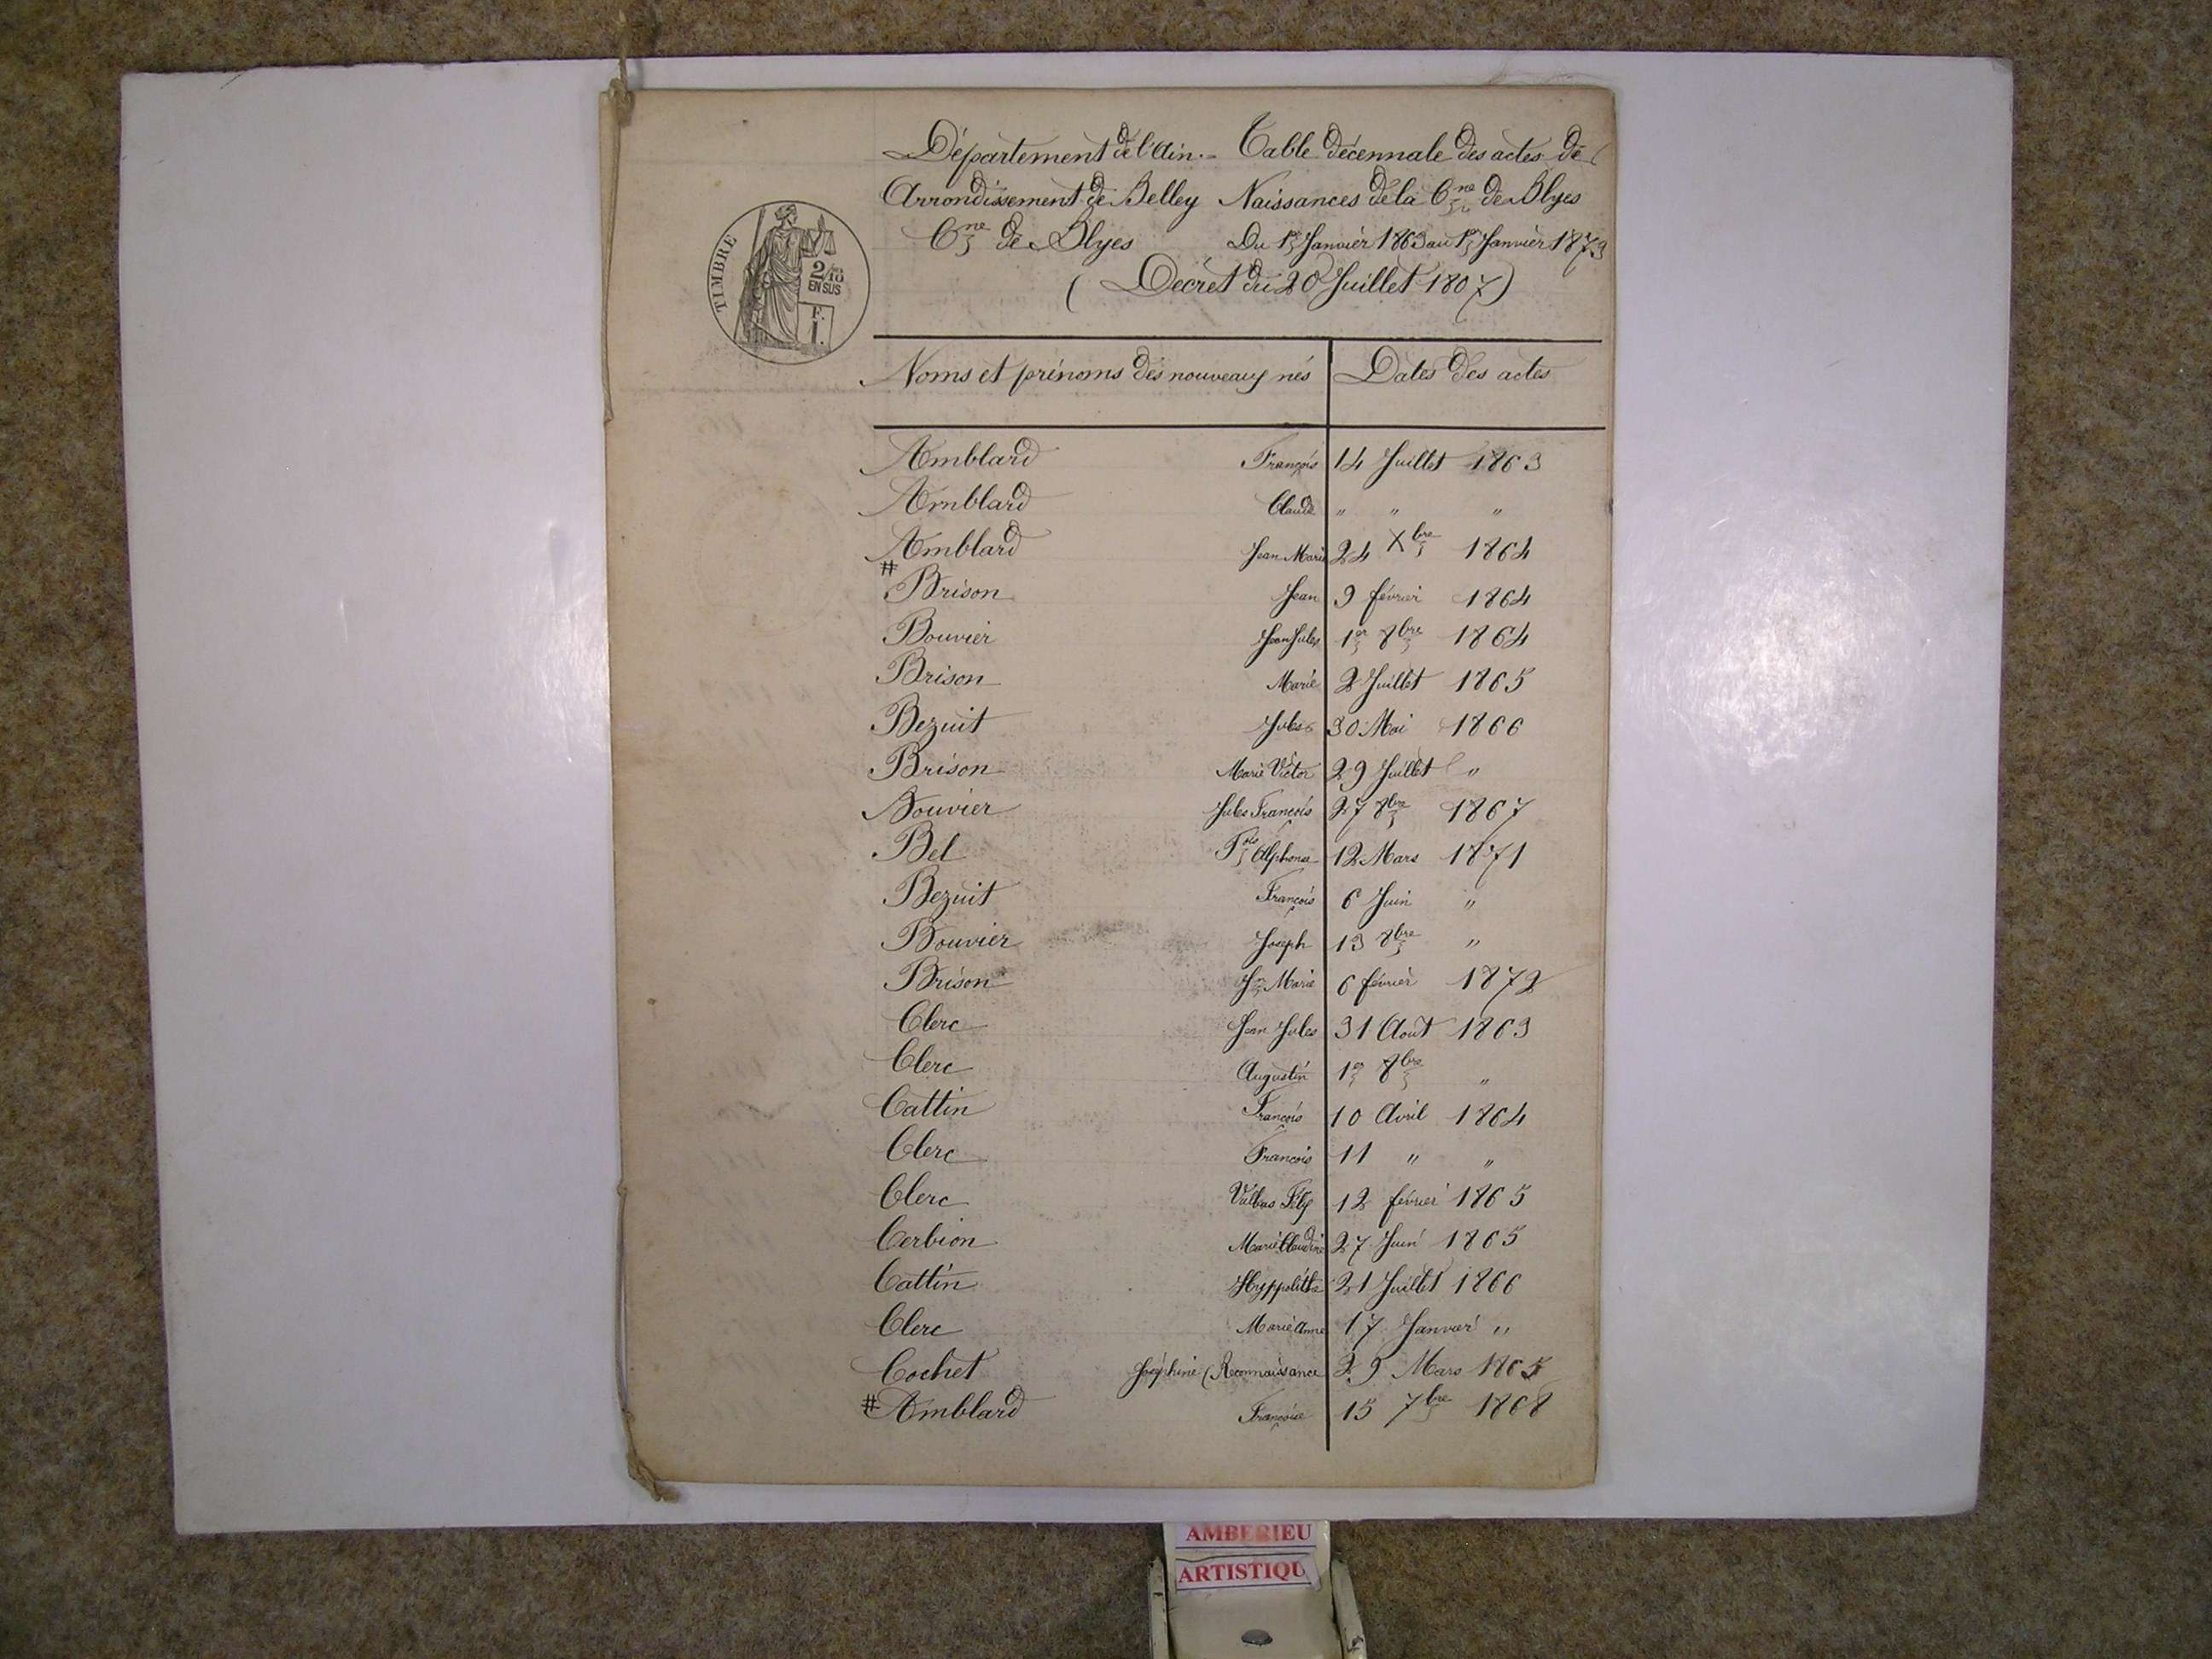 Département de l'Ain.- Table décennale des actes de
Arrondissement de Belley Naissances de la Cne de Blyes
Cne de Blyes Du 1er Janvier 1863 au 1er Janvier 1873
(Décret du 20 Juillet 1807)
TIMBRE
2/10
EN SUS
F.
1.
Noms et prénoms des nouveaux nés Dates des actes
Amblard François 14 Juillet 1863
Amblard Claude " " "
Amblard Jean Marie 24 Xbre 1864
# Brison Jean 9 février 1864
Bouvier Jean Jules 1er 8bre 1864
Brison Marie 2 Juillet 1865
Bezuit Jules 30 Mai 1866
Brison Marie Victor 29 Juillet "
Bouvier Jules François 27 8bre 1867
Bel Fois Alphonse 12 Mars 1871
Bezuit François 6 Juin "
Bouvier Joseph 13 8bre "
Brison Jn Marie 6 février 1872
Clerc Jean Jules 31 Août 1863
Clerc Augustin 1er 8bre "
Cattin François 10 Avril 1864
Clerc François 11 " "
Clerc 12 février 1865
Cerbion Marie Claudine 27 Juin 1865
Cattin Hyppolithe 21 Juillet 1866
Clerc Marie Anne 17 Janvier "
Cochet Joséphine (Reconnaissance 29 Mars 1865
# Amblard Françoise 15 7bre 1868
AMBERIEU
ARTISTIQU